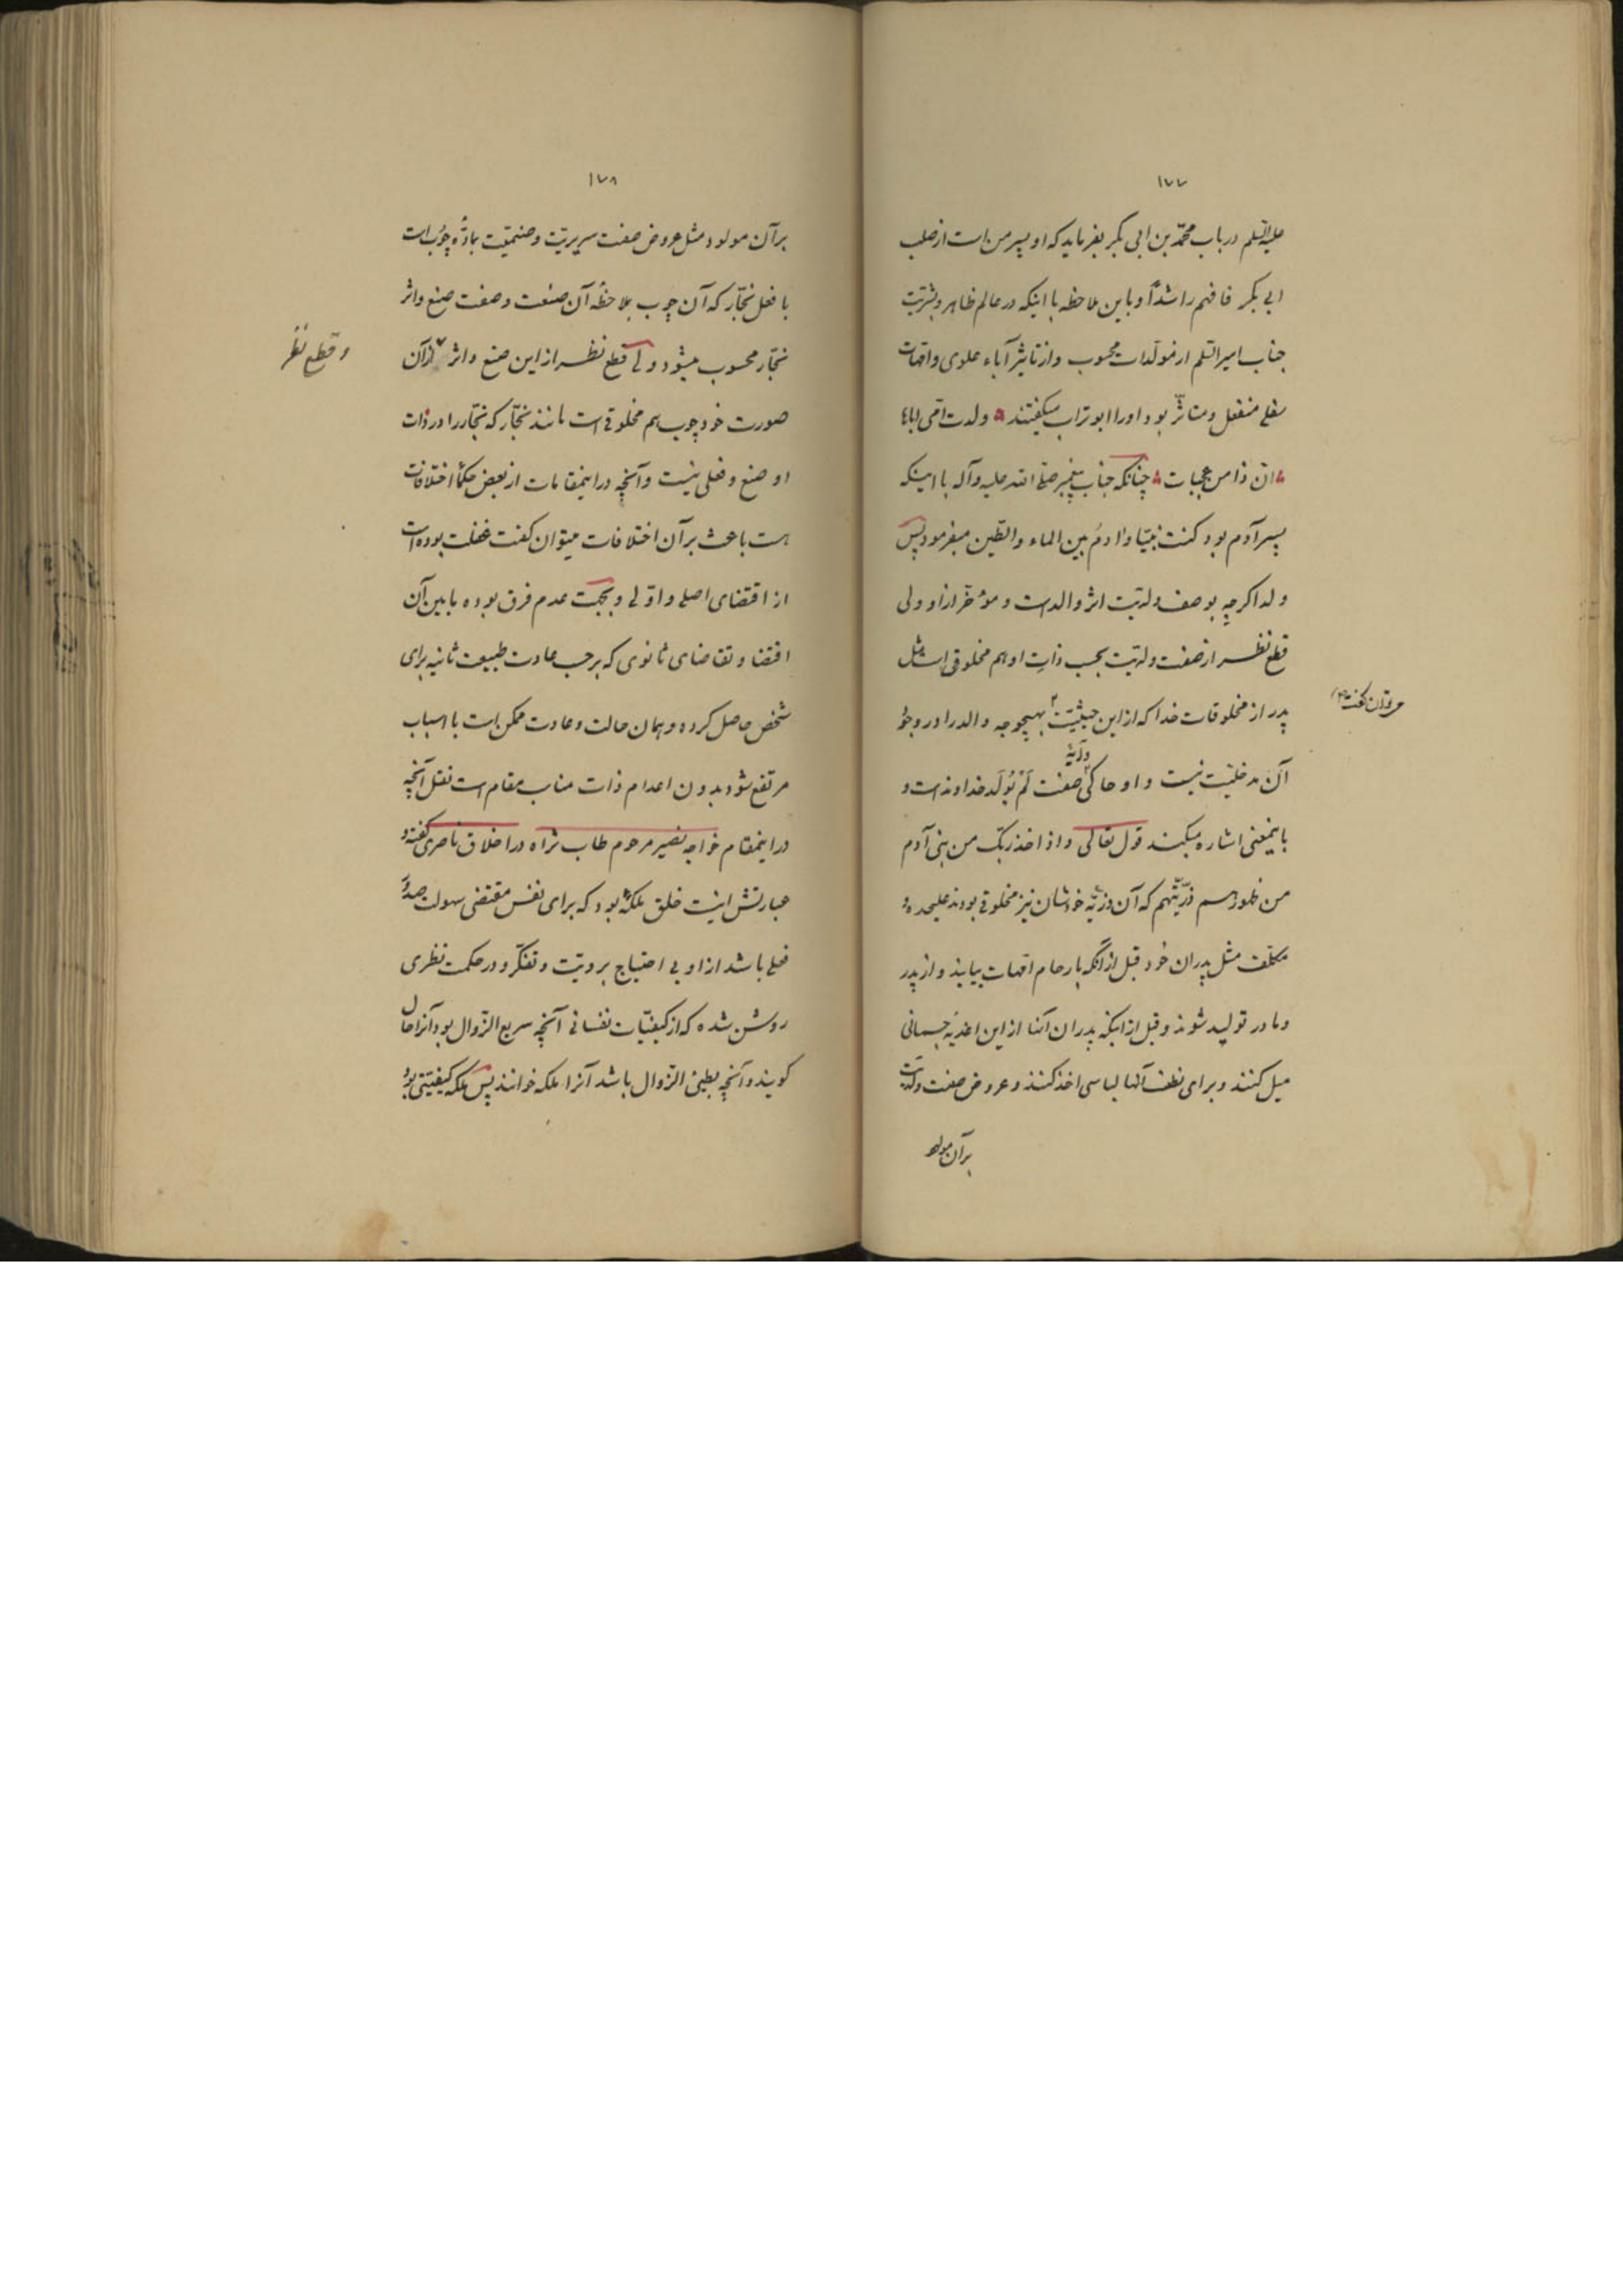 ١٧٧
علیه السلم در باب محمّد بن ابی بکر بفرماید که او پسر من است از صلب
ابی بکر فافهم راشداً و باین ملاحظه با اینکه در عالم ظاهر و بشریّت
جناب امیر السلم از مولّدات محسوب و از تاثیر آباء علوی و امّهات
سفلی منفعل و متاثّر بود او را ابو تراب میگفتند ولدت امّی اباها
انّ ذا من عجبات چنانکه جناب پیغمبر صلّی الله علیه و آله با اینکه
پسر آدم بود کنت نبیّا و ادمُ بین الماء و الطّین میفرمود پس
ولد اکرچه بوصف ولدیّت اثر والد است و مؤخّر از او ولی
قطع نظر از صفت ولدیّت بحسب ذات او هم مخلوقی است مثل
پدر از مخلوقات خدا که از این حیثیّت بهیچوجه والد را در وجود
آن مدخلیّت نیست و او حاکی صفت لَمْ یُولَد خداوند است و
باینمعنی اشاره میکند قول تعالی و اذ اخذ ربّک من بنی آدم
من ظهورهم ذرّیّتهم که آن ذرّیّه خودشان نیز مخلوقی بودند علیحده و
مکلّف مثل پدران خود قبل از آنکه بارحام امّهات بیایند و از پدر
و مادر تولید شوند و قبل از اینکه پدران آنها از این اغذیه جسمانی
میل کنند و برای نطف آنها لباسی اخذ کنند و عروض صفت ولدیّت
بر آن مولود
١٧٨
بر آن مولود مثل عروض صفت سریریّت و صنمیّت بمادّه چوب است
با فعل نجّار که آن چوب بملاحظه آن صنعت و صفت صنع و اثر
نجّار محسوب میشود ولی قطع نظر از این صنع و اثر از آن
و قطع نظر
صورت خود چوب هم مخلوقی است مانند نجّار که نجّار را در ذات
او صنع و فعلی نیست و آنچه در اینمقامات از بعض حکما اختلافات
هست باعث بر آن اختلافات میتوان گفت غفلت بوده است
از اقتضای اصلی و اوّلی و بجهت عدم فرق بوده ما بین آن
اقتضا و تقاضای ثانوی که بر حسب عادت طبیعت ثانیه برای
شخص حاصل کرده و همان حالت و عادت ممکن است با اسباب
مرتفع شود بدون اعدام ذات مناسب مقام است نقل آنچه
در اینمقام خواجه نصیر مرحوم طاب ثراه در اخلاق ناصری گفته و
عبارتش اینست خلق ملکهٔ بود که برای نفس مقتضی سهولت صدور
فعلی باشد از او بی احتیاج برویّت و تفکّر و در حکمت نظری
روشن شده که از کیفیّات نفسانی آنچه سریع الزّوال بود آنرا حال
گویند و آنچه بطیئ الزّوال باشد آنرا ملکه خوانند پس ملکه کیفیّتی بود